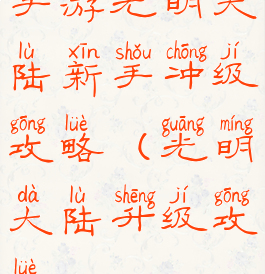 手游光明大
lù xīn shǒu chōng jí
陆新手冲级
gōng lüè guāng míng
攻略（光明
dà lù shēng jí gōng
大陆升级攻
lüè